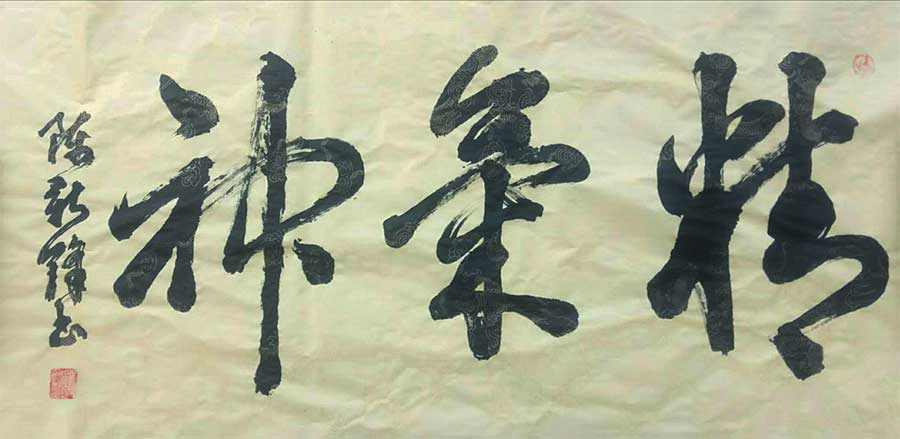 精氣神
陈新锋书